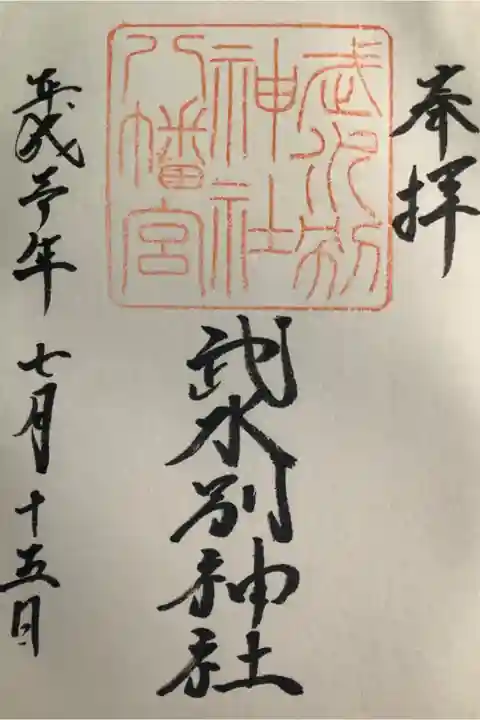 奉拝
武水別
神社
八幡宮
武水別神社
平成 年 七月十五日